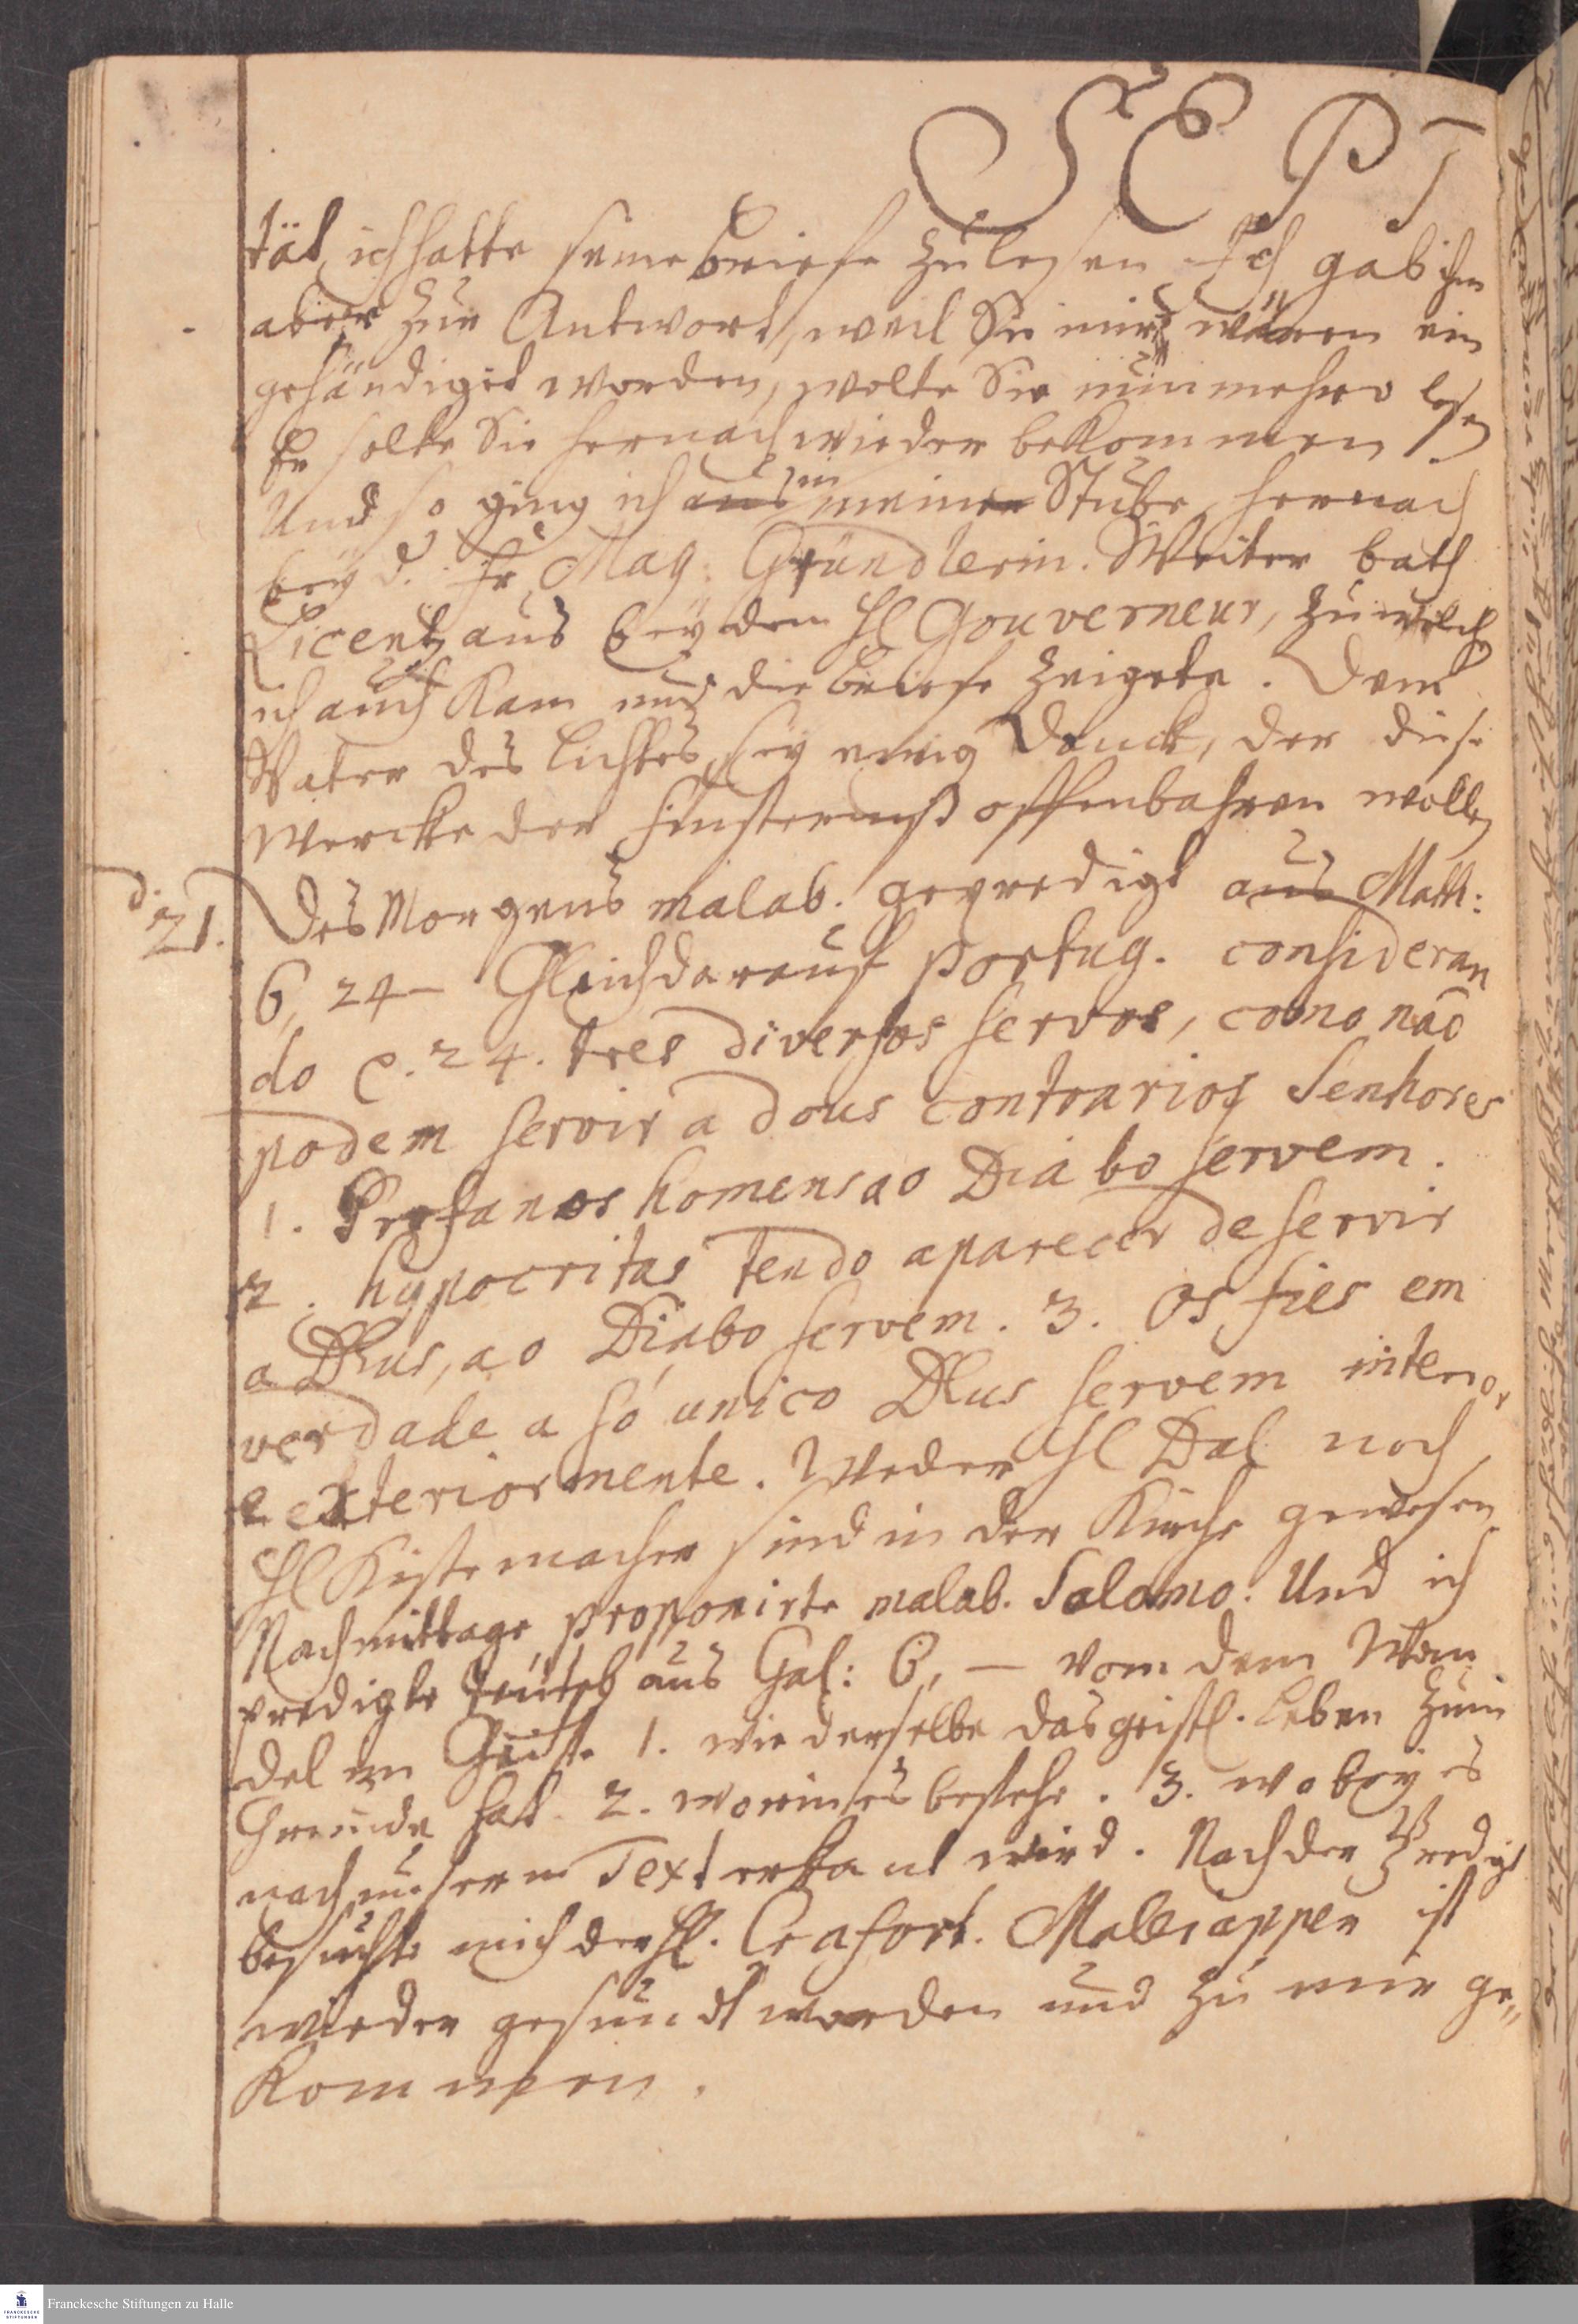 SEPT
tät, ich hatte seine briefe zu lesen Ich gab ihm
aber zur Antwort, weil Sie mir wären ein
gehändiget worden, wolte Sie nunmehro lesen
Er solte Sie hernach wieder bekommen
Und so ging ich aus in meiner Stube, hernach
bey d. Fr. Mag: Gründlerin. Weiter bath
Licentz aus bey dem Hl Gouverneur, zu welch
ich auch kam und die briefe zeigete. Dem
Vater des Lichtes sey ewig Danck, der diese
Wercke der Finsterniß offenbahren wollen
d. 21. Des Morgens malab. gepredigt aus Matth:
6, 24 – Gleich darauf portug. consideran
do c. 24. tres diversos servos, como não
podem servir a dous contrarios Senhores
1. Profanos homens ao Diabo servem.
2. hypocritas tendo aparecer de servir
a Dhus, ao Diabo servem. 3. Os fies em
verdade a só unico Dhus servem interior
e exteriormente. Weder Hl Dal noch
Hl Kistemacher sind in der Kirche gewesen
Nachmittage proponirte malab. Salomo. Und ich
predigte teutsch aus Gal: 6, – vom dem Wan
del im Geiste 1. wie derselbe das geistl. Leben zum
Grunde hat. 2. worin es bestehe. 3. wobey es
nach unserm Text erkant wird. Nach der Predigt
besuchte mich der Hl. Crafort. Maleiappen ist
wieder gesundt worden und zu mir ge„
kommen.
Franckesche Stiftungen zu Halle
FRANCKESCHE STIFTUNGEN